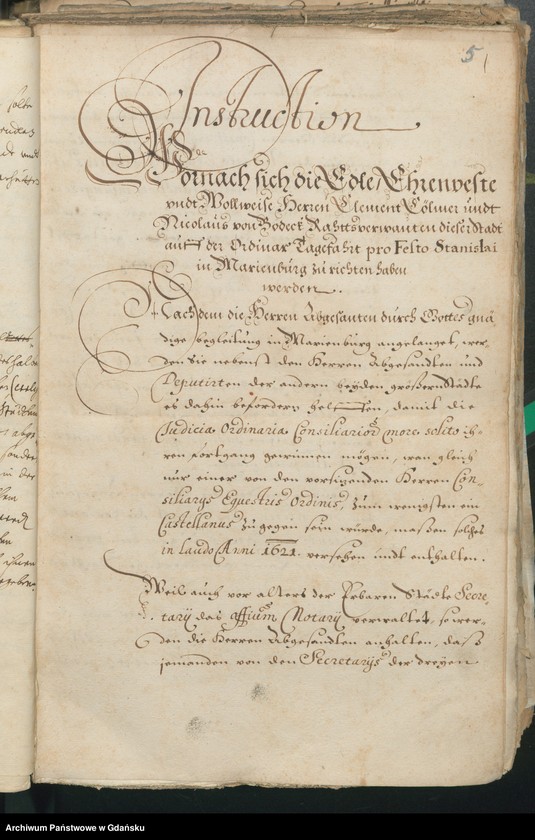 5
Instruction
Wornach sich die Edle, Ehrenveste
vndt Wollweise Herren Clement Cölmer undt
Nicolaus von Bodeck Rahttsverwanten dieser stadt
auff der Ordinar Tagefahrt pro Festo Stanislai
in Marienburg zu richten haben
werden.
Nach dem die Herren Abgesanten durch Gottes gnä-
dige begleitung in Marienburg angelanget, wer-
den Sie nebenst den Herren Abgesandten und
Deputirten der andern beyden größern Städte
es dahin befördern helffen, damit die
Judicia Ordinaria Consiliariorum more solito ih-
ren fortgang gewinnen mögen, wan gleich
nur einer von den vorsizenden Herren Con-
siliarys Equestris Ordinis, zum wenigsten ein
Castellanus zu gegen sein würde, maßen solches
in laudo Anni 1621. versehen undt enthalten.
Weil auch vor alters der Erbaren Städte Secre-
tarij das officium Notarij verwaltet, so wer-
den die Herren Abgesandten anhalten, daß
jemanden von den Secretarys der dreyen
Archiwum Państwowe w Gdańsku